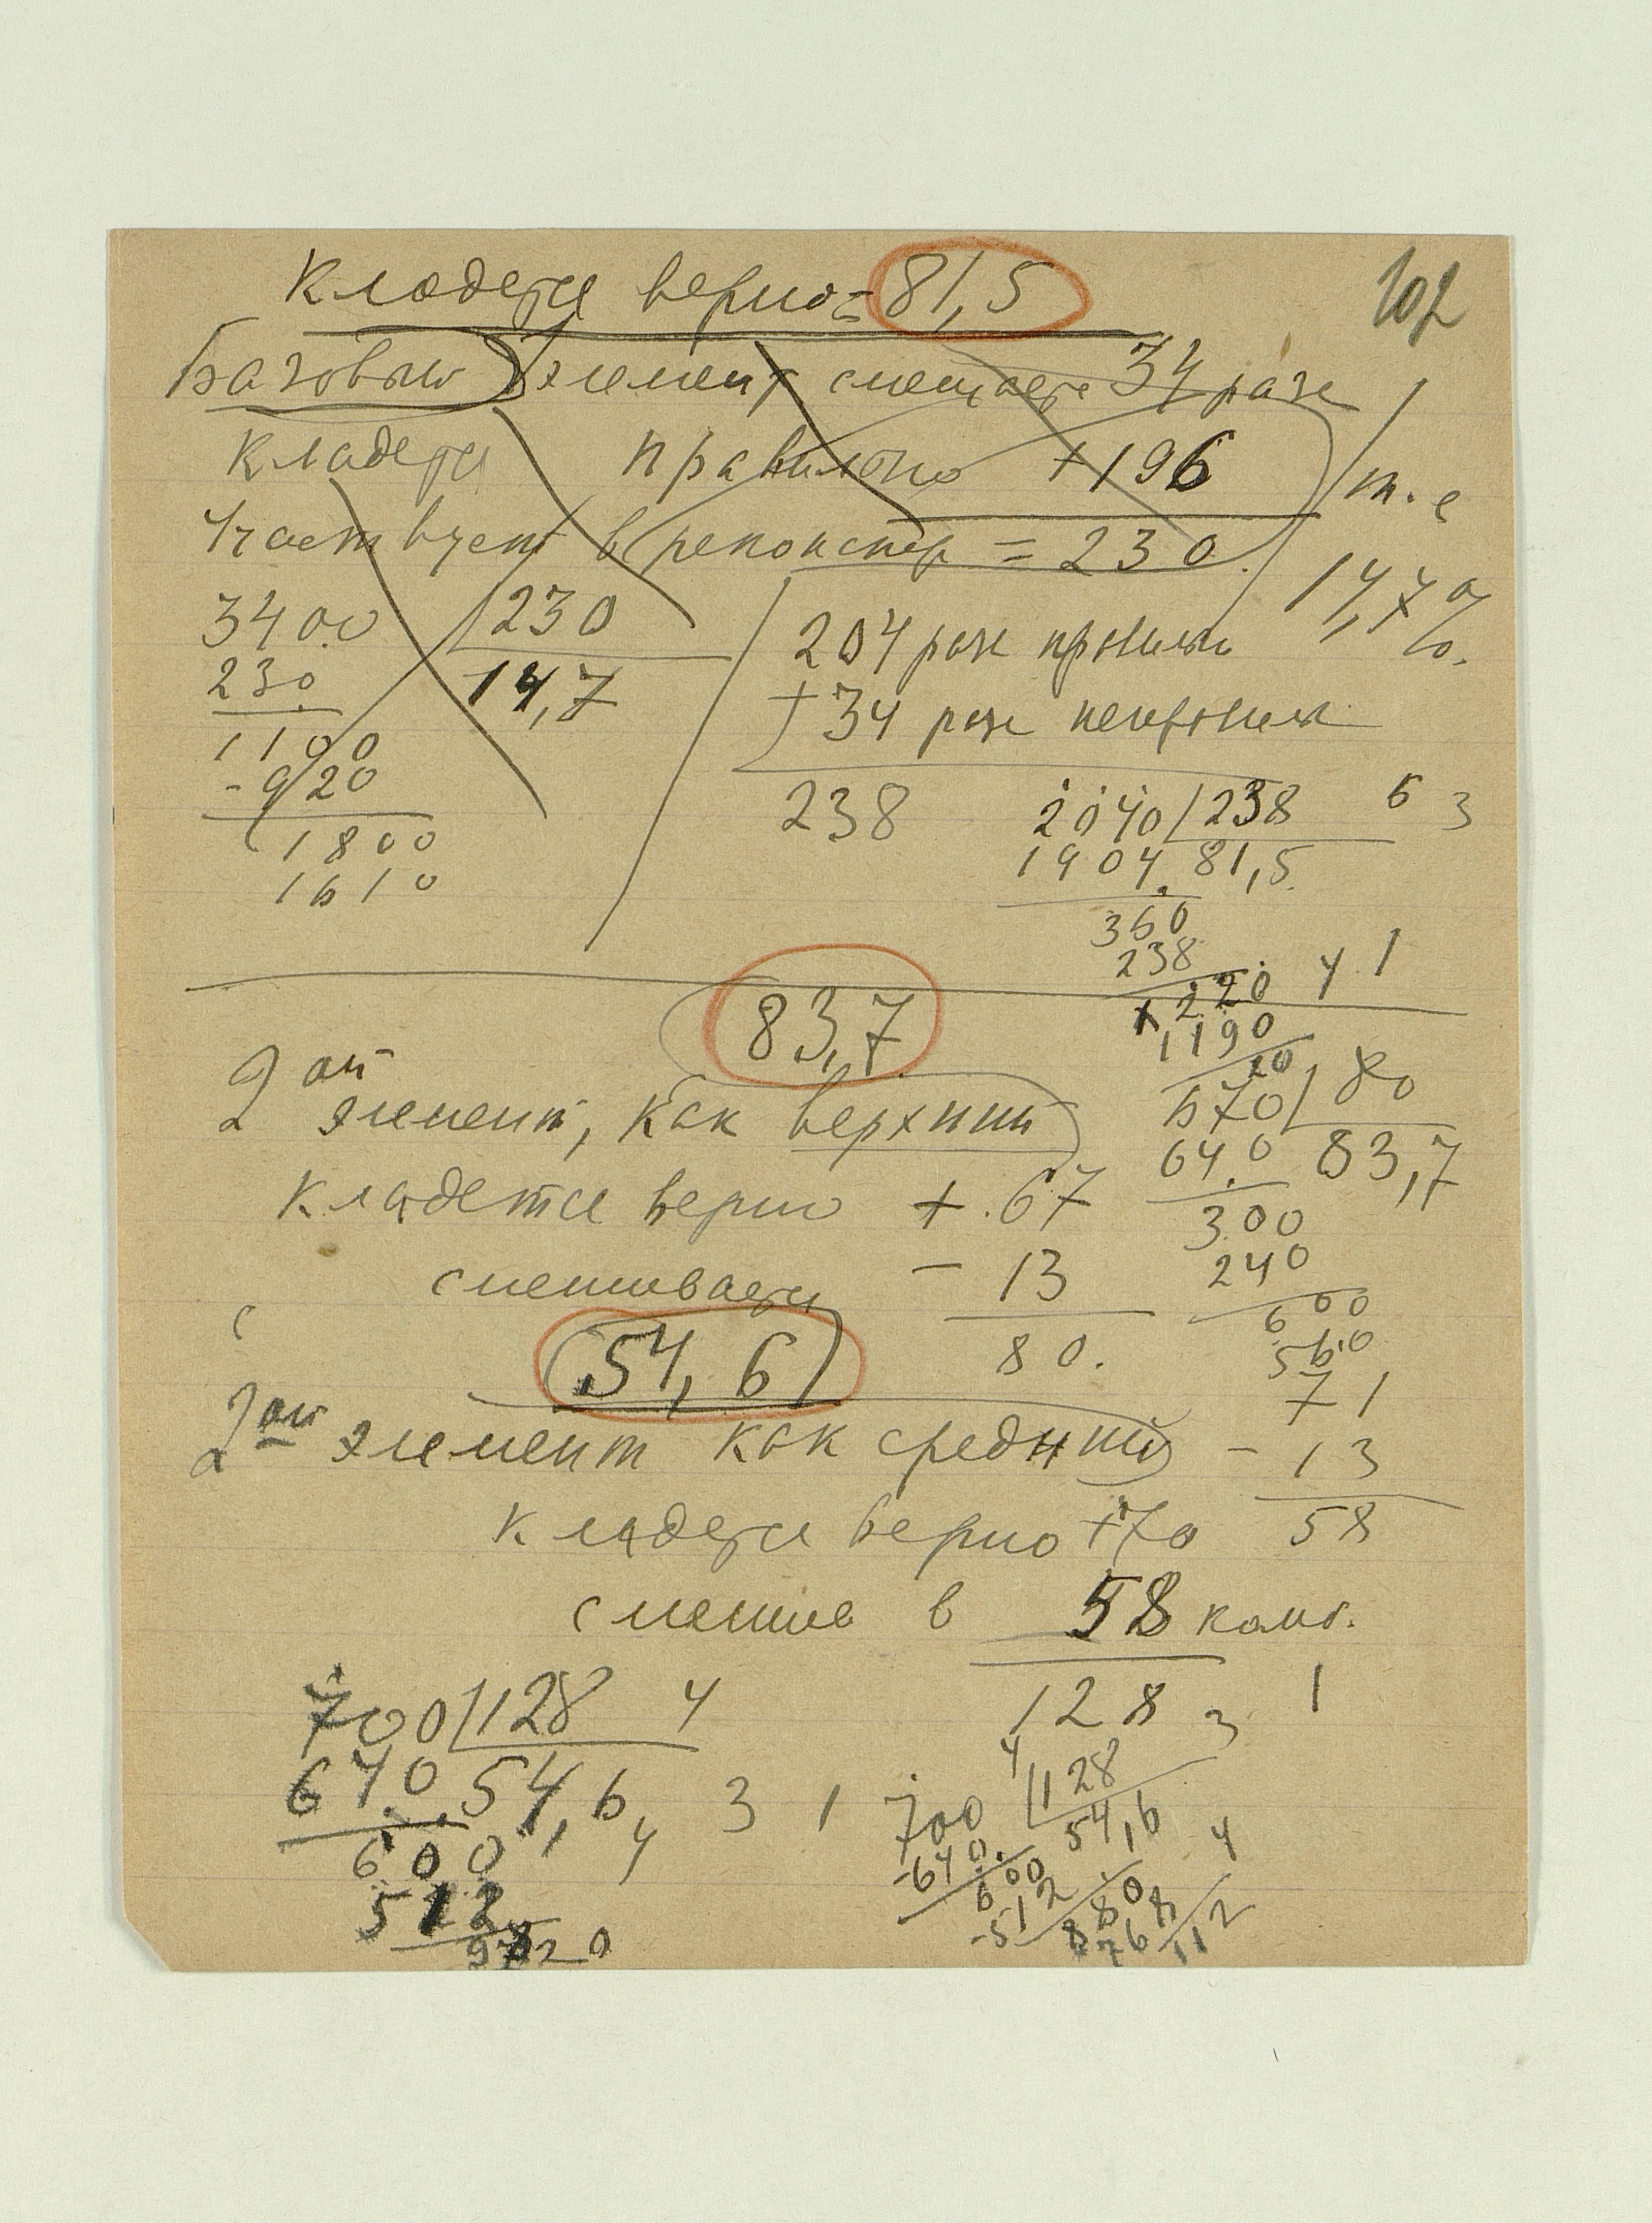 102
Кладется верно = 81,5
Базовый элемент смещается 34 раза
Кладется правильно + 196 т. е
Участвует в реконстр = 230. 14,7%.
3400 | 230
230 14,7
1100
- 920
1800
1610
204 раза правильн
+ 34 раза неправильн
238
2040 | 238 6 3
1904 81,5.
360
238
1220 4 1
1190
20
83,7
2 ой
элемент, как верхний
кладется верно + 67
смешивается - 13
80.
670 | 80
640 83,7
300
240
600
560
54,6
2ой элемент как средний
71
- 13
58
кладется верно + 70
смешив в 58 комб.
128 3 1
700 | 128 4
640 54,6 3 1
600 4
512
700 | 128 4
- 640 54,6
600 4
- 512
880
768
112